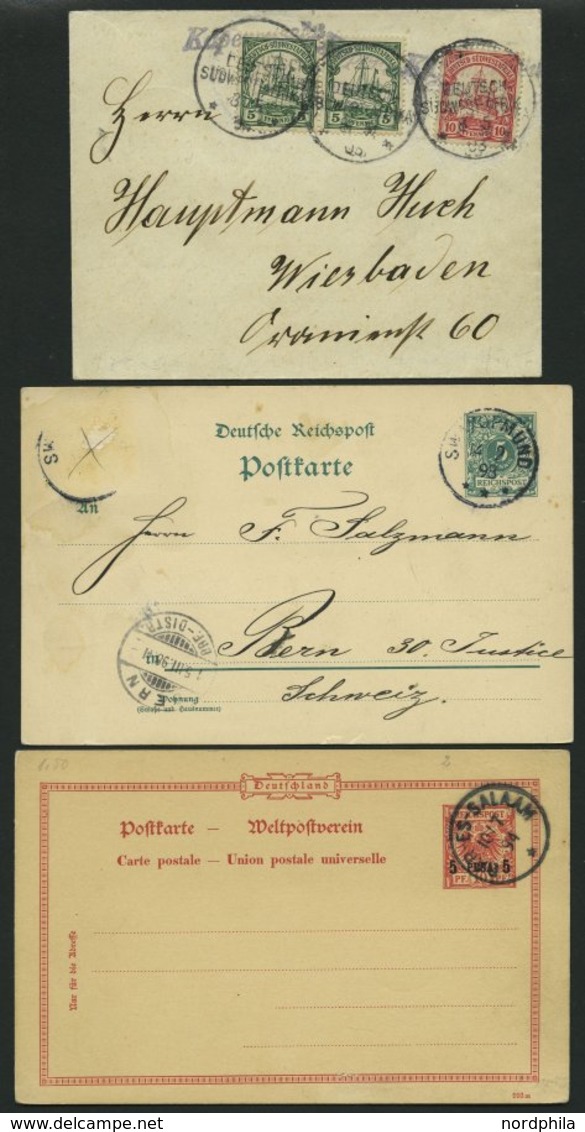 DEUTSCH-SÜDWESTAFRIKA DEUTSCH-SÜDWESTAFRIKA
5 PFENNIG 5 5 PFENNIG 5 10 PFENNIG 10
Herrn
Hauptmann Huch
Wiesbaden
Oranienst 60
Deutsche Reichspost
Postkarte
REICHSPOST
SWAKOPMUND
SW
98
An
Herrn F. Salzmann
in Bern 30. Justice
Schweiz.
Wohnung
(Straße und Hausnummer)
BERN
1,50 2
Deutschland
Postkarte — Weltpostverein
Carte postale — Union postale universelle
DAR-ES-SALAAM
94
5 PESA 5
Nur für die Adresse
nordphila